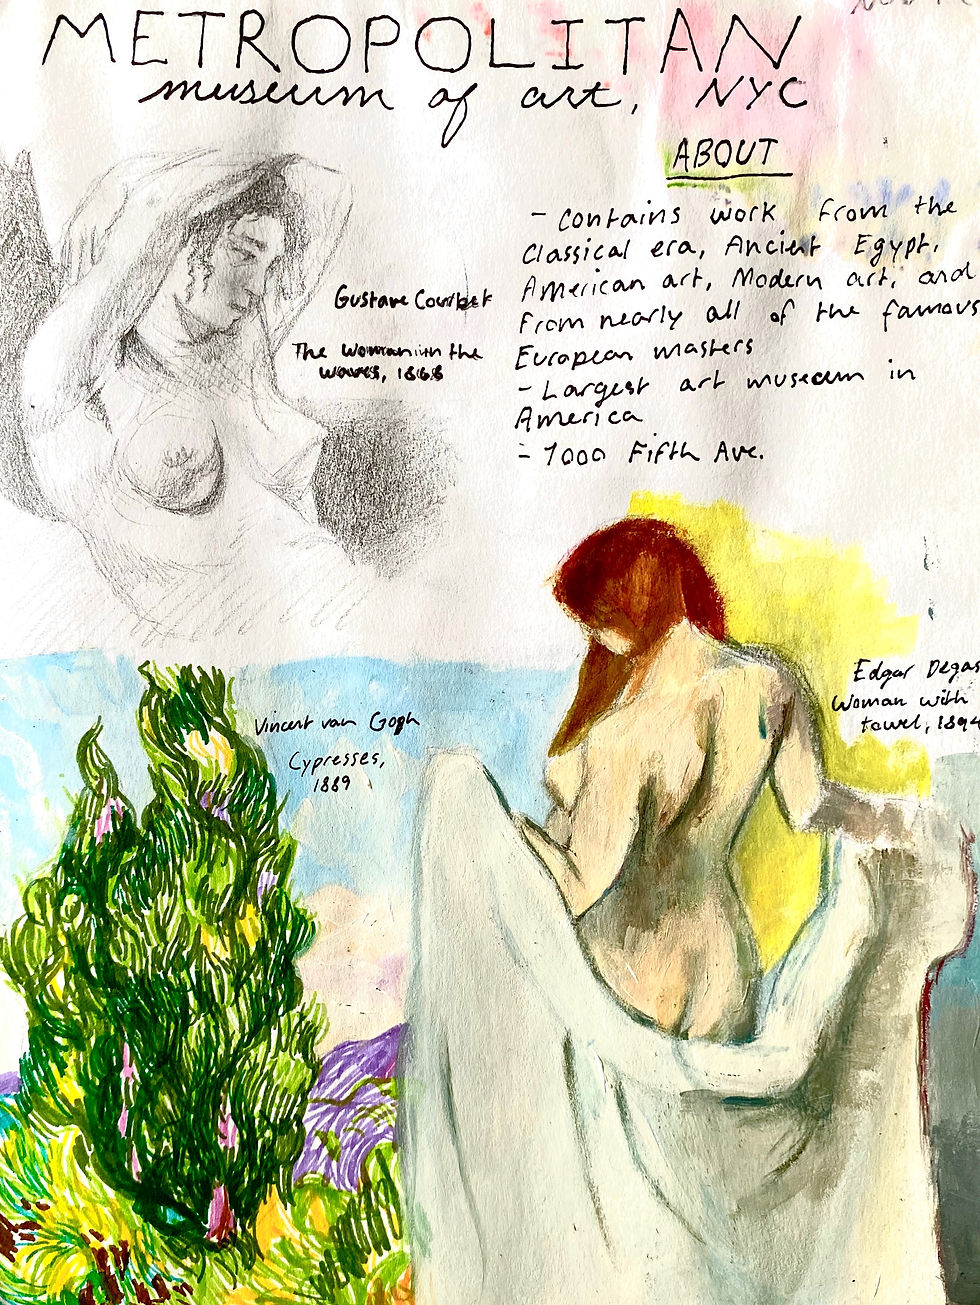 METROPOLITAN
museum of art, NYC
ABOUT
- Contains work from the
Classical era, Ancient Egypt,
American art, Modern art, and
from nearly all of the famous
European masters
- Largest art museum in
America
- 1000 Fifth Ave.
Gustave Courbet
The Woman in the
waves, 1868
Edgar Degas
Woman with
towel, 1894
Vincent van Gogh
Cypresses,
1889